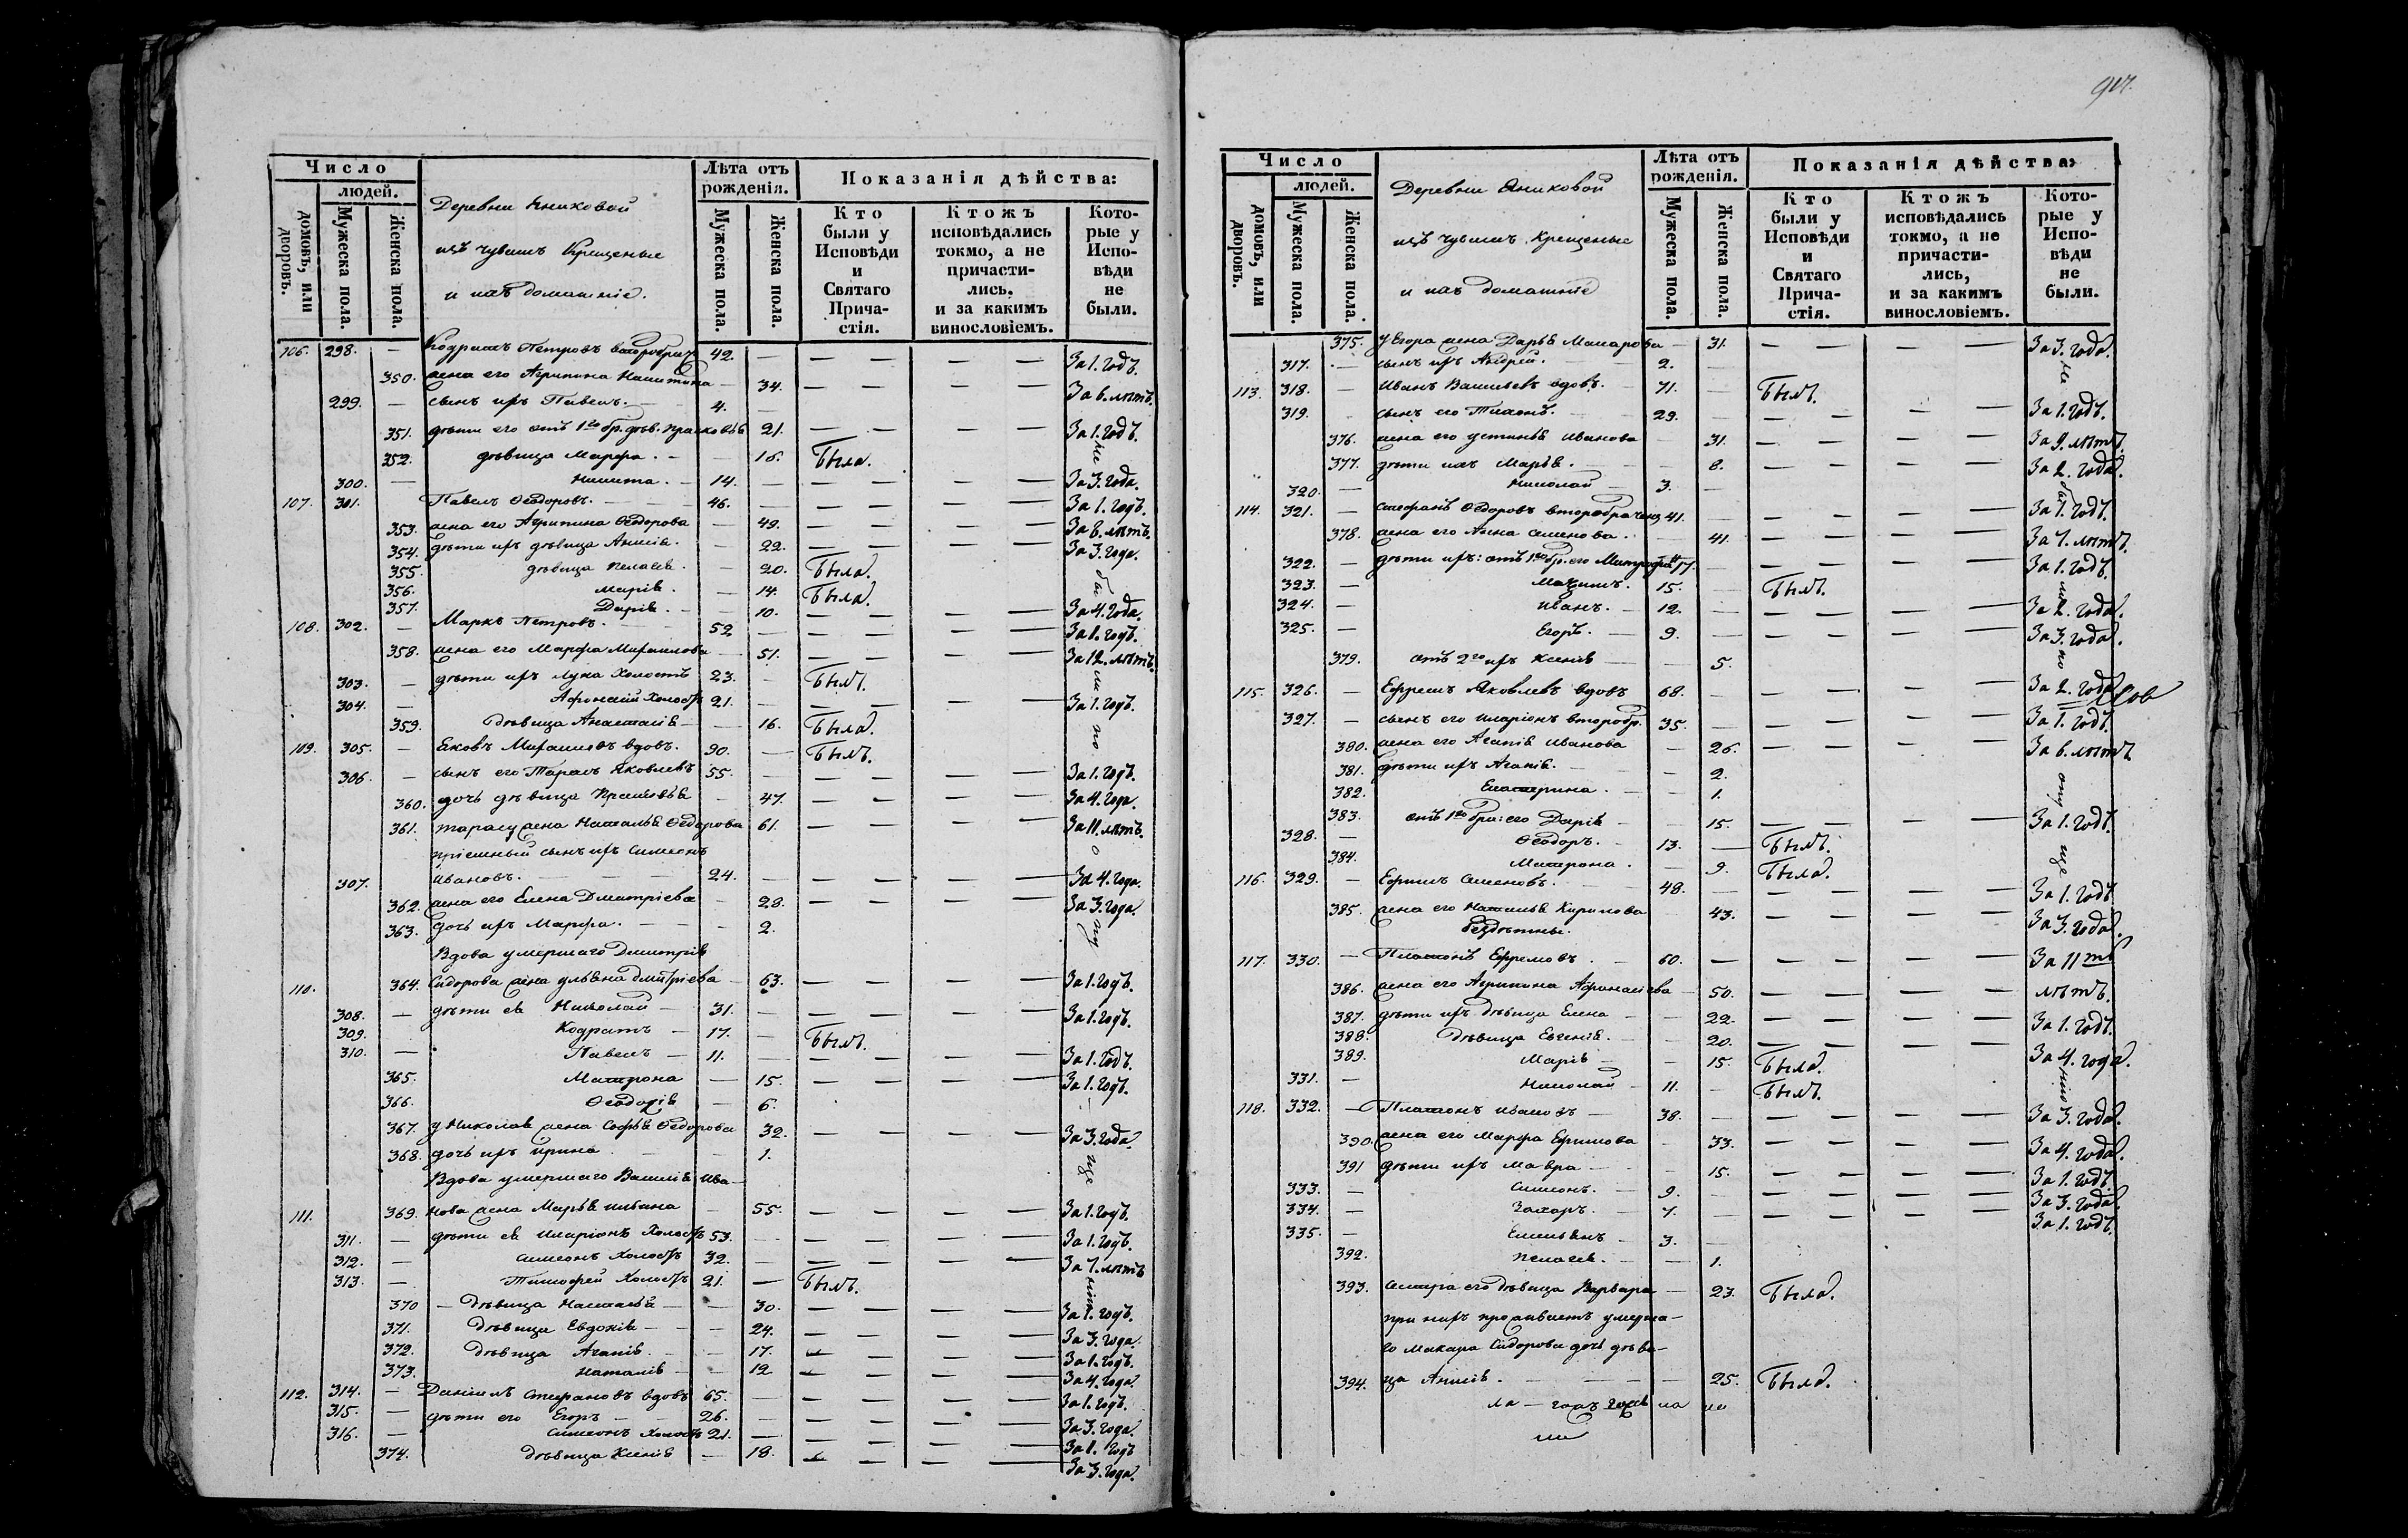 Число
людей.
домовъ, или дворовъ.
Мужеска пола.
Женска пола.
Деревни Яниковой
изъ чувашъ Крещеные
и ихъ домашніе.
Лѣта отъ рожденія.
Мужеска пола.
Женска пола.
Показанія дѣйства:
Кто были у Исповѣди и Святаго Причастія.
Ктожъ исповѣдались токмо, а не причастились, и за какимъ винословіемъ.
Которые у Исповѣди не были.
106. 298. — Кодратъ Петровъ второбрач 42. — — — — — За 1. годъ.
350. жена его Агрипина Никитина — 34. — — — — За 6. лѣтъ.
299. — сынъ ихъ Павелъ. — 4. —
351. дѣти его отъ 1го бр. дѣв. Прасковья 21. — — — — За 1. годъ.
352. дѣвица Марѳа. — — 16. Была.
300. — Никита. — 14. — — — — — За 3. года.
107. 301. Павелъ Ѳеодоровъ. — 46. — — — — — За 1. годъ.
353. жена его Агрипина Ѳеодорова — 49. — — — — За 8. лѣтъ.
354. дѣти ихъ дѣвица Анисія. — 22. — — — — За 3. года.
355. дѣвица Пелагея. — 20. Была.
356. Марія. — 14. Была.
357. Дарія. — — 10. — — — — За 4. года.
108. 302. — Маркъ Петровъ. — 52 — — — — — За 1. годъ.
358. жена его Марѳа Михаилова — 51. — — — — За 12. лѣтъ.
303. — дѣти ихъ Лука Холостъ 23. — Былъ.
304. — Афонасій Холостъ 21. — — — — — За 1. годъ.
359. дѣвица Анастасія — — 16. Была.
109. 305. — Яковъ Михаиловъ вдовъ. 90. — Былъ.
306. — сынъ его Тарасъ Яковлевъ 55. — — — — — За 1. годъ.
360. дочь дѣвица Прасковья — 47. — — — — За 4. года.
361. Тарасу жена Наталья Ѳеодорова 61. — — — — За 11. лѣтъ.
пріемный сынъ ихъ Симеонъ
307. Ивановъ. — — — 24. — — — — — За 4. года.
362. жена его Елена Дмитріева — 28. — — — — За 3. года.
363. дочь ихъ Марѳа. — — — 2.
Вдова умершаго Димитрія
110. 364. Сидорова жена Ульяна Дмитріева — 63. — — — — За 1. годъ.
308. — дѣти ея Николай — 31. — — — — — За 1. годъ.
309. Кодратъ — 17. — Былъ.
310. — Павелъ — 11. — — — — — За 1. годъ.
365. Матрона — 15. — — — — За 1. годъ.
366. Ѳеодосія — 6.
367. У Николая жена Софья Ѳеодорова 32. — — — — За 3. года
368. дочь ихъ Ирина — — 1.
Вдова умершаго Василія Ива-
111. 369. нова жена Марья Ильина — 55. — — — — За 1. годъ.
311. — дѣти ея Иларіонъ Холостъ 53. — — — — — За 1. годъ.
312. — Симеонъ Холостъ 32. — — — — — За 7. лѣтъ
313. — Тимофей Холостъ 21. — Былъ.
370 — дѣвица Наталья — — 30. — — — — За 1. годъ.
371. дѣвица Евдокія — — 24. — — — — За 3. года.
372. дѣвица Агапія. — — 17. — — — — За 1. годъ.
373. Наталія — — 12 — — — — За 4. года
112. 314. — Даніилъ Стефановъ вдовъ 65. — — — — — За 1. годъ.
315. — дѣти его Егоръ — 26. — — — — — За 3. года.
316. — Симеонъ Холостъ 21. — — — — — За 1. годъ
374. дѣвица Ксенія — 18. — — — — За 3. года.
не были по опу ще нію
Число
людей.
домовъ, или дворовъ.
Мужеска пола.
Женска пола.
Деревни Яниковой
изъ чувашъ Крещеные
и ихъ домашніе
Лѣта отъ рожденія.
Мужеска пола.
Женска пола.
Показанія дѣйства:
Кто были у Исповѣди и Святаго Причастія.
Ктожъ исповѣдались токмо, а не причастились, и за какимъ винословіемъ.
Которые у Исповѣди не были.
375. У Егора жена Дарья Макарова — 31. — — — — За 3. года.
317. — сынъ ихъ Андрей. — 2. —
113. 318. — Иванъ Васильевъ вдовъ. — 71. — Былъ.
319. сынъ его Тихонъ. — 29. — — — — — За 1. годъ.
376. жена его Устинья Иванова — 31. — — — — За 9. лѣтъ.
377. дѣти ихъ Марья. — — 8. — — — — За 2. года.
320. — Николай — 3. —
114. 321. — Стефанъ Ѳеодоровъ второбрачен 41. — — — — — За 1. годъ.
378. жена его Анна Семенова. — 41. — — — — За 7. лѣтъ.
322. — дѣти ихъ: отъ 1го бр. его Митрофанъ 17. — — — — — За 1. годъ.
323. — Максимъ. — 15. — Былъ.
324. — Иванъ. — 12. — — — — — За 2. года.
325. — Егоръ. — 9. — — — — — За 3. года.
379. отъ 2го ихъ Ксенія — — 5.
115. 326. — Ефремъ Яковлевъ вдовъ 68. — — — — — За 2. года
327. — сынъ его Иларіонъ второбр. 35. — — — — — За 1. годъ.
380. жена его Агапія Иванова — 26. — — — — За 6. лѣтъ
381. дѣти ихъ Агапія. — — 2.
382. Екатерина. — — 1.
383. отъ 1го бра: его Дарія — — 15. — — — — За 1. годъ.
328. — Ѳеодоръ. — 13. — Былъ.
384. Матрона. — 9. Была.
116. 329. — Ефимъ Семеновъ. — 48. — — — — — За 1. годъ
385. жена его Наталья Кирилова 43. — — — — За 3. года.
бездѣтные.
117. 330. — Платонъ Ефремовъ. — 60. — — — — — За 11ть
386. жена его Агрипина Афонасіева — 50. — — — — лѣтъ.
387. дѣти ихъ дѣвица Елена — — 22. — — — — За 1. годъ.
388. дѣвица Евгенія. — — 20. — — — — За 4. года.
389. Марія — — 15. Была.
331. — Николай — 11. — Былъ.
118. 332. — Платонъ Ивановъ — 38. — — — — — За 3. года.
390. жена его Марѳа Ефимова — 33. — — — — За 4. года.
391 дѣти ихъ Мавра — — — 15. — — — — За 1. годъ.
333. — Симеонъ. — 9. — — — — — За 3. года.
334. — Захаръ. — 7. — — — — — За 1. годъ.
335. — Емельянъ — 3. —
392. Пелагея. — — 1.
393. сестра его дѣвица Варвара — 23. Была.
при нихъ проживаетъ умерша-
го Макара Сидорова дочь дѣви-
394. ца Анисія. — — — — 25. Была.
не были по опу ще нію